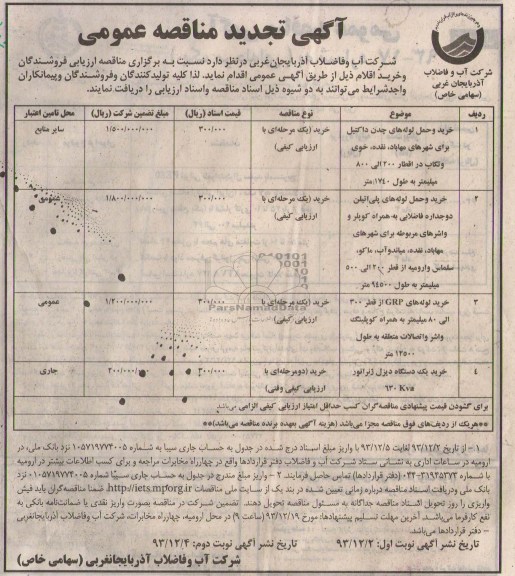 آگهی تجدید مناقصه عمومی
شرکت آب و فاضلاب
آذربایجان غربی
(سهامی خاص)
شرکت آب وفاضلاب آذربایجان‌غربی درنظر دارد نسبت به برگزاری مناقصه ارزیابی فروشندگان
وخرید اقلام ذیل از طریق آگهی عمومی اقدام نماید. لذا کلیه تولیدکنندگان وفروشندگان وپیمانکاران
واجدشرایط می‌توانند به دو شیوه ذیل اسناد مناقصه واسناد ارزیابی را دریافت نمایند.
ردیف موضوع نوع مناقصه قیمت اسناد (ریال) مبلغ تضمین شرکت (ریال) محل تامین اعتبار
۱ خرید وحمل لوله‌های چدن داکتیل خرید (یک مرحله‌ای با ۳۰۰/۰۰۰ ۱/۵۰۰/۰۰۰/۰۰۰ سایر منابع
برای شهرهای مهاباد، نقده، خوی ارزیابی کیفی)
وتکاب در اقطار ۲۰۰ الی ۸۰۰
میلیمتر به طول ۱۷۴۰ متر
۲ خرید وحمل لوله‌های پلی‌اتیلن خرید (یک مرحله‌ای با ۳۰۰/۰۰۰ ۱/۸۰۰/۰۰۰/۰۰۰ عمومی
دوجداره فاضلابی به همراه کوپلر و ارزیابی کیفی)
واشرهای مربوطه برای شهرهای
مهاباد، نقده، میاندوآب، ماکو،
سلماس وارومیه از قطر ۲۰۰ الی ۵۰۰
میلیمتر به طول ۹۴۵۰۰ متر
۳ خرید لوله‌های GRP از قطر ۳۰۰ خرید (یک مرحله‌ای با ۳۰۰/۰۰۰ ۱/۲۰۰/۰۰۰/۰۰۰ عمومی
الی ۸۰۰ میلیمتر به همراه کوپلینگ ارزیابی کیفی)
واشر واتصالات متعلقه به طول
۱۲۵۰۰ متر
۴ خرید یک دستگاه دیزل ژنراتور خرید (دومرحله‌ای با ۳۰۰/۰۰۰ ۲۰۰/۰۰۰/۰۰۰ جاری
۹۳۰ Kva ارزیابی کیفی وفنی)
برای گشودن قیمت پیشنهادی مناقصه‌گران کسب حداقل امتیاز ارزیابی کیفی الزامی می‌باشد
**هریک از ردیف‌های فوق مناقصه مجزا می‌باشد (هزینه آگهی بعهده برنده مناقصه می‌باشد)**
۱- از تاریخ ۹۳/۱۲/۲ لغایت ۹۳/۱۲/۵ با واریز مبلغ اسناد درج شده در جدول به حساب جاری سیبا به شماره ۰۱۰۵۷۱۹۷۷۴۰۰۵ نزد بانک ملی، در
ارومیه در ساعات اداری به نشانی ستاد شرکت آب و فاضلاب دفتر قراردادها واقع در چهارراه مخابرات مراجعه و برای کسب اطلاعات بیشتر در ارومیه
با شماره ۳۱۹۴۵۳۷۳-۰۴۴ (دفتر قراردادها) تماس حاصل فرمایند. ۲ - واریز مبلغ مندرج در جدول به حساب جاری سیبا شماره ۰۱۰۵۷۱۹۷۷۴۰۰۵ نزد
بانک ملی ودریافت اسناد مناقصه درباره زمانی تعیین شده در بند یک از سایت ملی مناقصات http://iets.mporg.ir ضمنا مناقصه‌گران باید فیش
واریزی را روز تحویل اسناد مناقصه جداگانه به مسئول مناقصه تحویل دهند. تضمین شرکت در مناقصه بصورت واریز نقدی یا ضمانت‌نامه بانکی به
نفع کارفرما می‌باشد. آخرین مهلت تسلیم پیشنهادها: مورخ ۹۳/۱۲/۱۹ (ساعت ۹) در محل ارومیه، چهارراه مخابرات، شرکت آب وفاضلاب آذربایجانغربی
- دفتر قراردادها می‌باشد.
تاریخ نشر آگهی نوبت اول: ۹۳/۱۲/۲ تاریخ نشر آگهی نوبت دوم: ۹۳/۱۲/۴
شرکت آب وفاضلاب آذربایجانغربی (سهامی خاص)
ParsNamadData